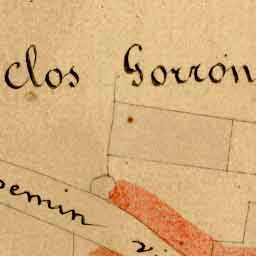 clos Gorron
emin vi